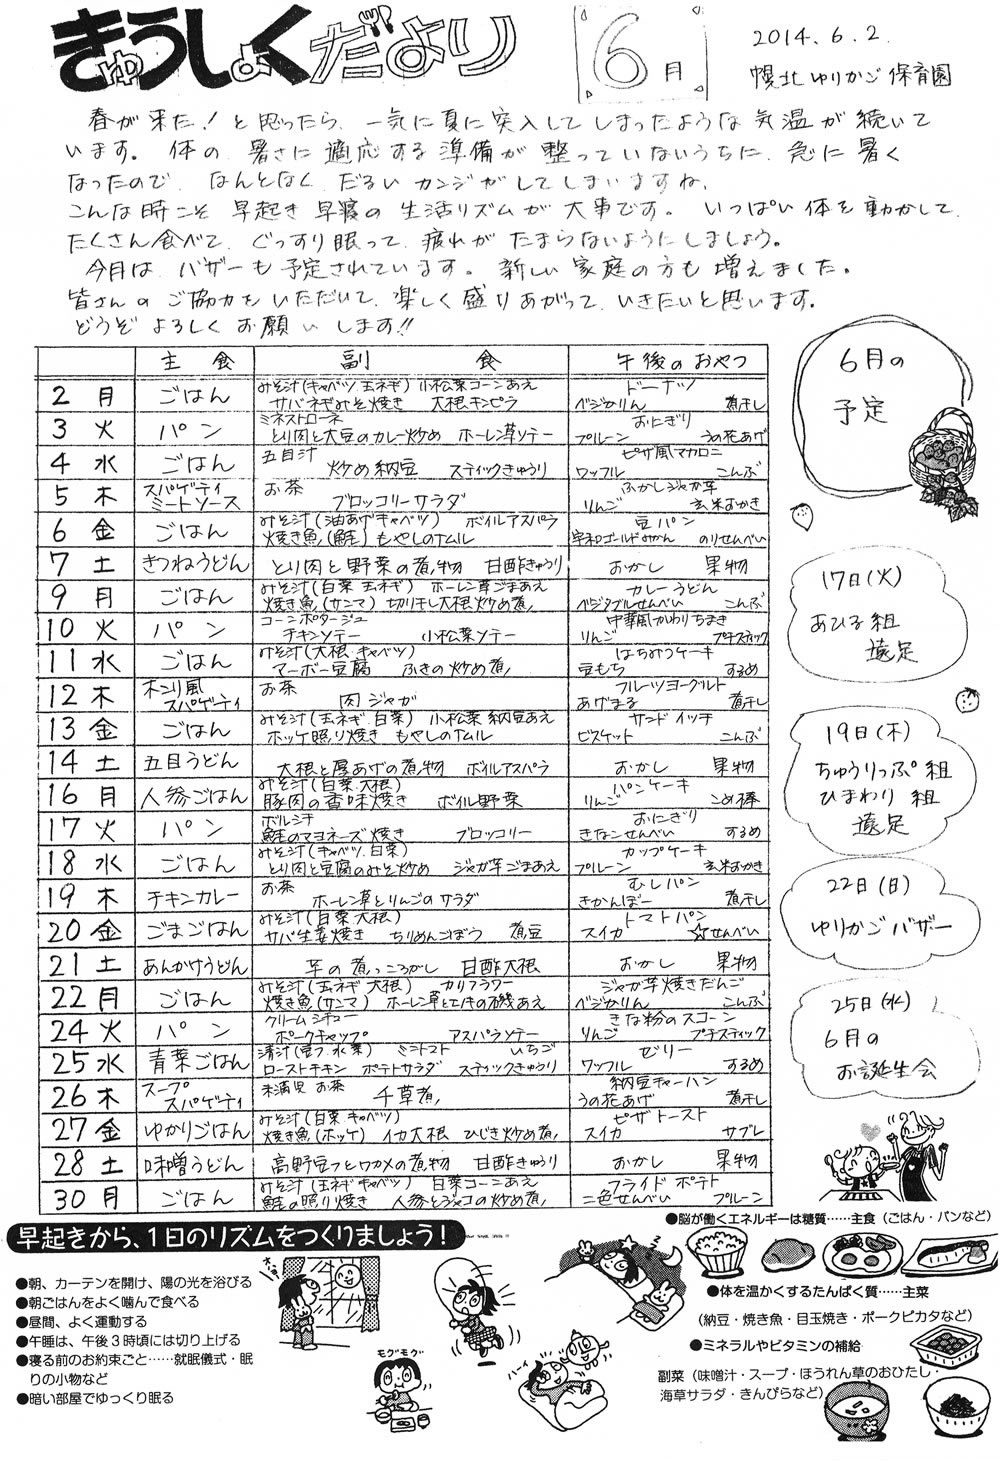 きゅうしょくだより
6月
2014.6.2.
幌北ゆりかご保育園
春が来た!と思ったら、一気に夏に突入してしまったような気温が続いて
います。体の暑さに適応する準備が整っていないうちに、急に暑く
なったので、なんとなくだるいカンジがしてしまいますね。
こんな時こそ早起き早寝の生活リズムが大事です。いっぱい体を動かして、
たくさん食べて、ぐっすり眠って、疲れがたまらないようにしましょう。
今月は、バザーも予定されています。新しい家庭の方も増えました。
皆さんのご協力をいただいて、楽しく盛りあがって、いきたいと思います。
どうぞよろしくお願いします!!
主食 副食 午後のおやつ
2 月 ごはん みそ汁(キャベツ 玉ネギ) 小松菜コーンあえ ドーナツ
サバネギみそ焼き 大根キンピラ ベジかりん 煮干し
3 火 パン ミネストローネ おにぎり
とり肉と大豆のカレー炒め ホーレン草ソテー プルーン うの花あげ
4 水 ごはん 五目汁 ピザ風マカロニ
炒め納豆 スティックきゅうり ワッフル こんぶ
5 木 スパゲティミートソース お茶 ふかしジャガ芋
ブロッコリーサラダ りんご 玄米おかき
6 金 ごはん みそ汁(油あげキャベツ) ボイルアスパラ 豆パン
焼き魚(鮭) もやしのナムル 宇和ゴールドみかん のりせんべい
7 土 きつねうどん とり肉と野菜の煮物 甘酢きゅうり おかし 果物
9 月 ごはん みそ汁(白菜 玉ネギ) ホーレン草ごまあえ カレーうどん
焼き魚(サンマ) 切り干し大根炒め煮 ベジタブルせんべい こんぶ
10 火 パン コーンポタージュ 中華風かわりちまき
チキンソテー 小松菜ソテー りんご プチスティック
11 水 ごはん みそ汁(大根 キャベツ) はちみつケーキ
マーボー豆腐 ふきの炒め煮 豆もち するめ
12 木 ナポリ風スパゲティ お茶 フルーツヨーグルト
肉ジャガ あげまる 煮干し
13 金 ごはん みそ汁(玉ネギ 白菜) 小松菜納豆あえ サンドイッチ
ホッケ照り焼き もやしのナムル ビスケット こんぶ
14 土 五目うどん 大根と厚あげの煮物 ボイルアスパラ おかし 果物
16 月 人参ごはん みそ汁(白菜 大根) パンケーキ
豚肉の香味焼き ボイル野菜 りんご こめ棒
17 火 パン ボルシチ おにぎり
鮭のマヨネーズ焼き ブロッコリー きなこせんべい するめ
18 水 ごはん みそ汁(キャベツ 白菜) カップケーキ
とり肉と豆腐のみそ炒め ジャガ芋ごまあえ プルーン 玄米おかき
19 木 チキンカレー お茶 むしパン
ホーレン草とりんごのサラダ きかんぼー 煮干し
20 金 ごまごはん みそ汁(白菜 大根) トマトパン
サバ生姜焼き ちりめんごぼう 煮豆 スイカ ☆せんべい
21 土 あんかけうどん 芋の煮っころがし 甘酢大根 おかし 果物
22 月 ごはん みそ汁(玉ネギ 大根) カリフラワー ジャガ芋焼きだんご
焼き魚(サンマ) ホーレン草とエノキの磯あえ ベジかりん こんぶ
24 火 パン クリームシチュー きな粉のスコーン
ポークチャップ アスパラソテー りんご プチスティック
25 水 青菜ごはん 清汁(豆フ 水菜) ミニトマト いちご ゼリー
ローストチキン ポテトサラダ スティックきゅうり ワッフル するめ
26 木 スープスパゲティ 未満児 お茶 納豆チャーハン
千草煮 うの花あげ 煮干し
27 金 ゆかりごはん みそ汁(白菜 キャベツ) ピザトースト
焼き魚(ホッケ) イカ大根 ひじき炒め煮 スイカ サブレ
28 土 味噌うどん 高野豆フとワカメの煮物 甘酢きゅうり おかし 果物
30 月 ごはん みそ汁(玉ネギ キャベツ) 白菜コーンあえ フライドポテト
鮭の照り焼き 人参とジャコの炒め煮 二色せんべい プルーン
6月の
予定
17日(火)
あひる組
遠足
19日(木)
ちゅうりっぷ組
ひまわり組
遠足
22日(日)
ゆりかごバザー
25日(水)
6月の
お誕生会
早起きから、1日のリズムをつくりましょう!
●朝、カーテンを開け、陽の光を浴びる
●朝ごはんをよく噛んで食べる
●昼間、よく運動する
●午睡は、午後3時頃には切り上げる
●寝る前のお約束ごと……就眠儀式・眠
りの小物など
●暗い部屋でゆっくり眠る
モグモグ
ハーイ
●脳が働くエネルギーは糖質……主食(ごはん・パンなど)
●体を温かくするたんぱく質……主菜
(納豆・焼き魚・目玉焼き・ポークピカタなど)
●ミネラルやビタミンの補給
副菜(味噌汁・スープ・ほうれん草のおひたし・
海草サラダ・きんぴらなど)